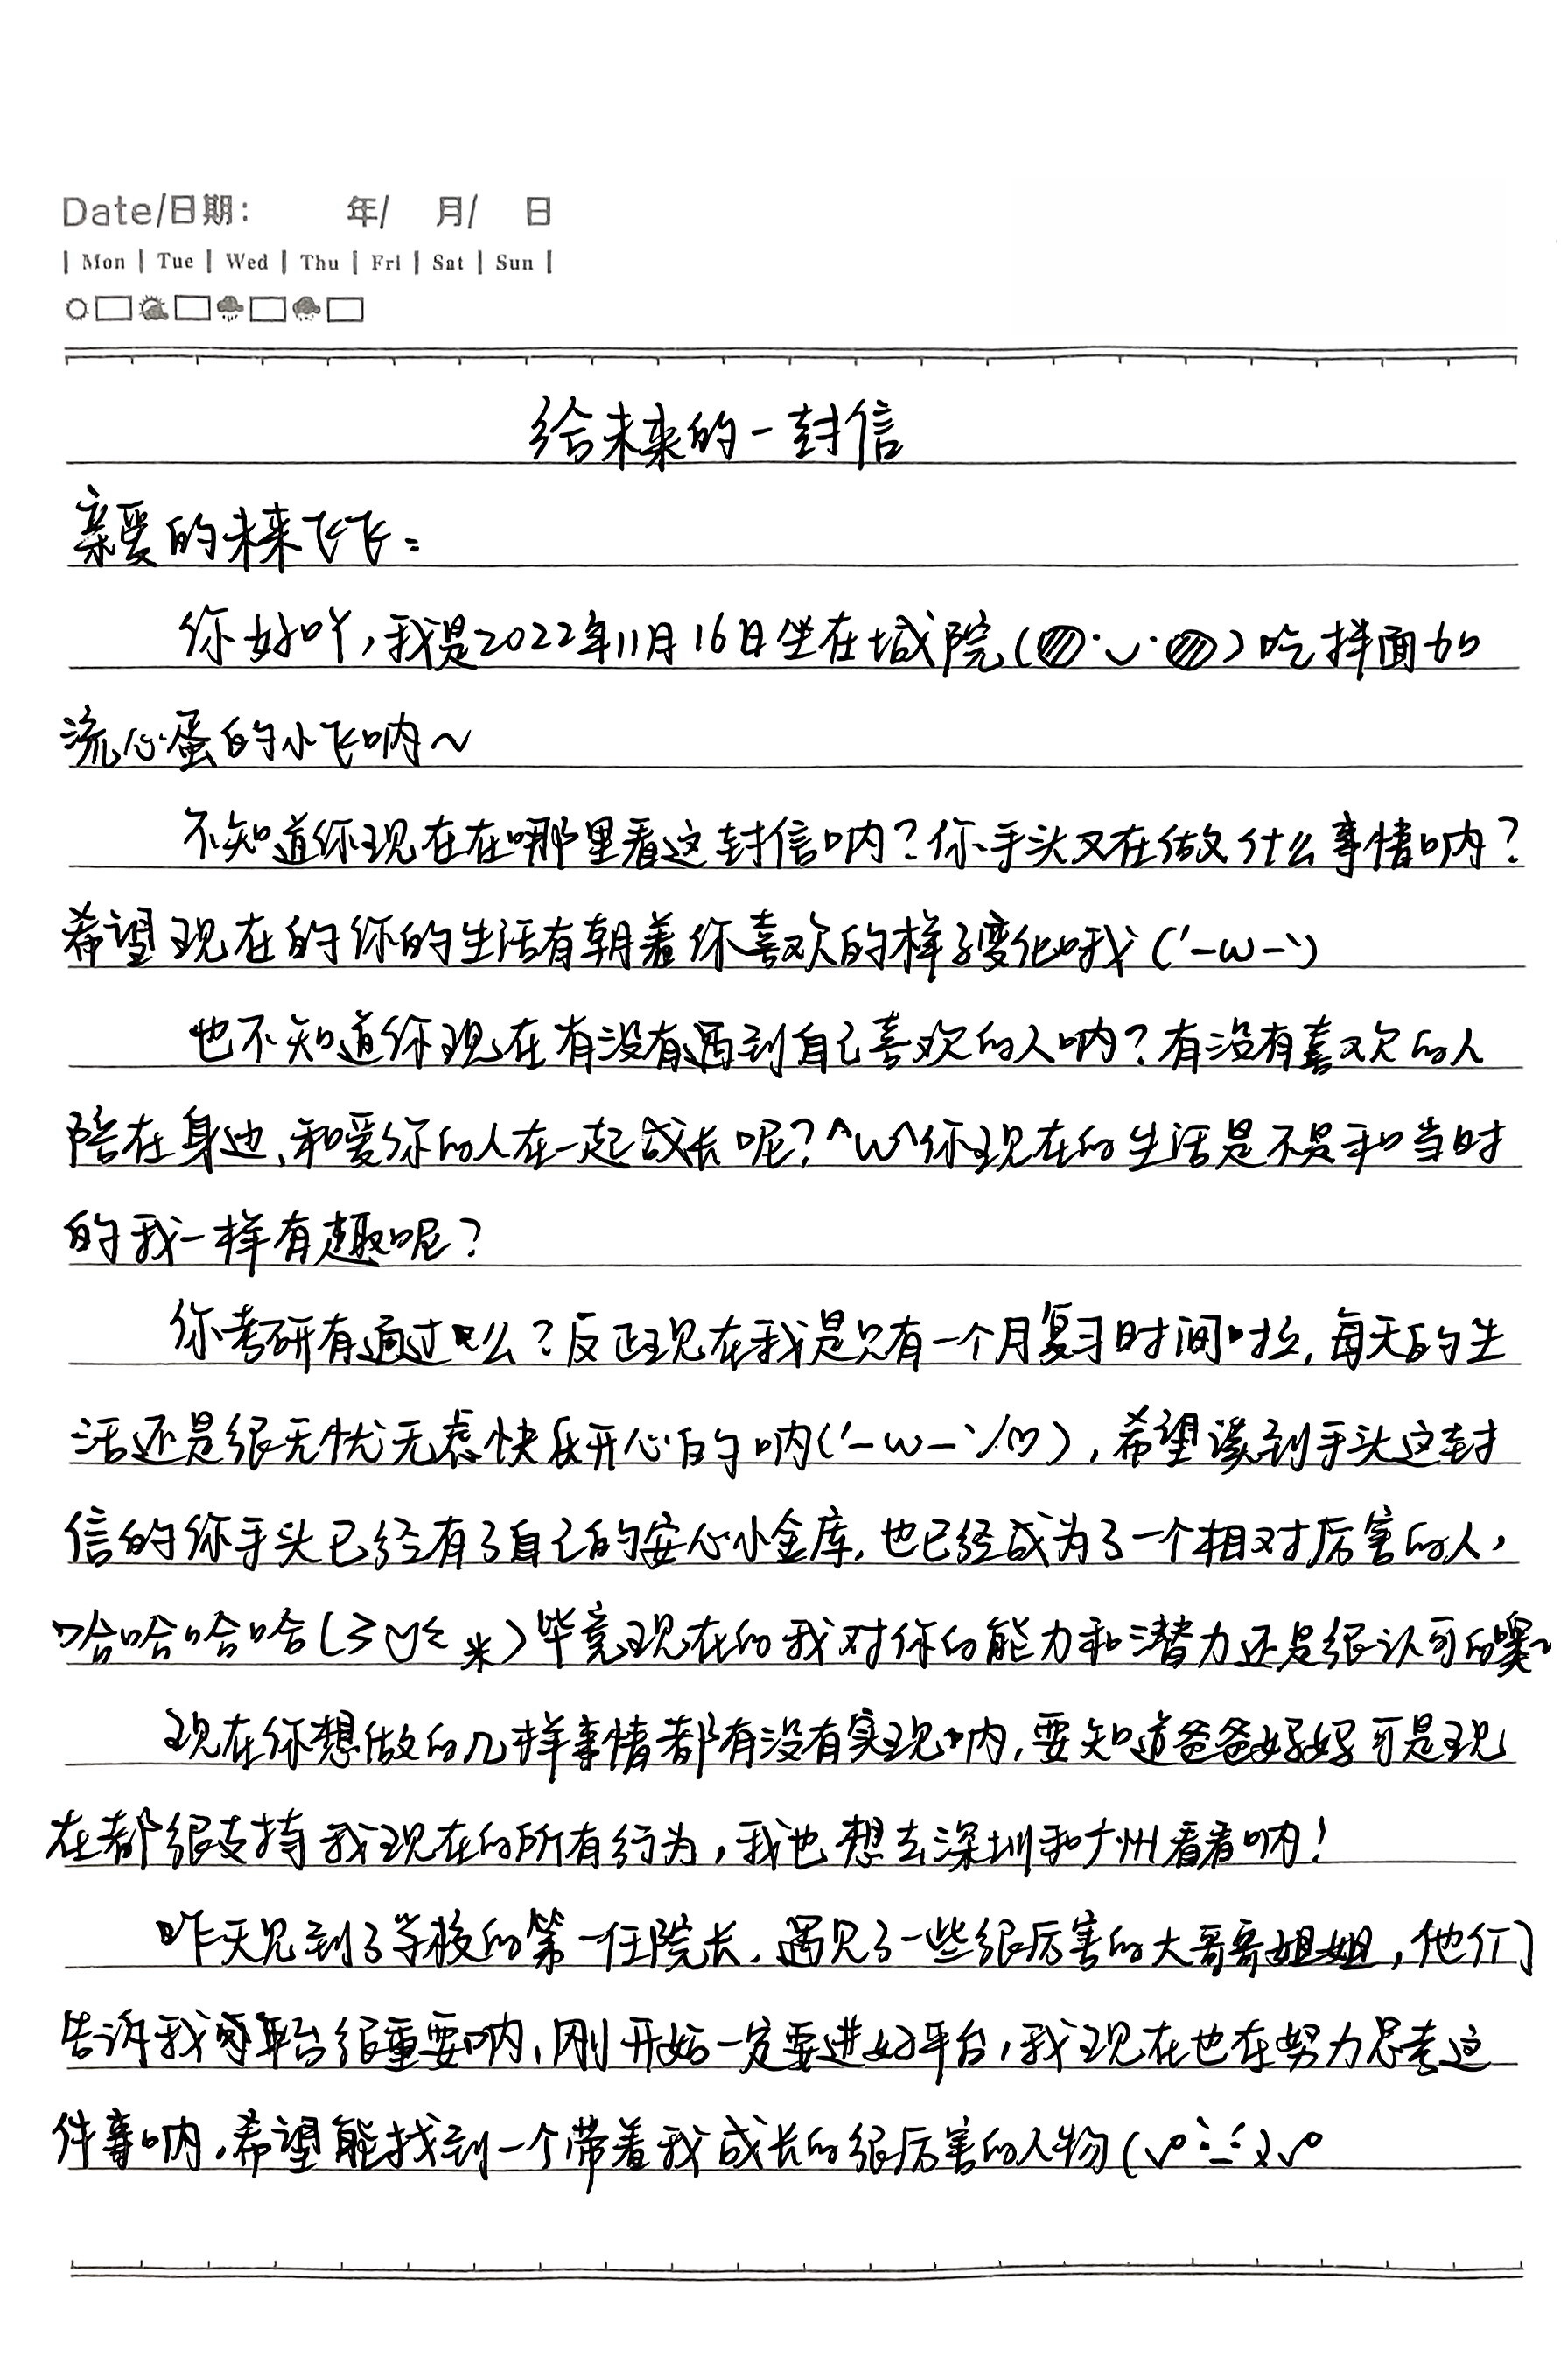 Date/日期: 年/ 月/ 日
| Mon | Tue | Wed | Thu | Fri | Sat | Sun |
给未来的一封信
亲爱的未来飞飞：
你好吖，我是2022年11月16日坐在城院(◍·ᴗ·◍)吃拌面加
流心蛋的小飞呐~
不知道你现在在哪里看这封信呐？你手头又在做什么事情呐？
希望现在的你的生活有朝着你喜欢的样子变化哦('-ω-`)
也不知道你现在有没有遇到自己喜欢的人呐？有没有喜欢的人
陪在身边、和爱你的人在一起成长呢？^W^你现在的生活是不是和当时
的我一样有趣呢？
你考研有通过么？反正现在我是只有一个月复习时间啦，每天的生
活还是很无忧无虑快乐开心的呐('-ω-`)，希望读到手头这封
信的你手头已经有了自己的安心小金库，也已经成为了一个相对厉害的人，
哈哈哈哈(ミᴗミ*)毕竟现在的我对你的能力和潜力还是很认可的噢~
现在你想做的几样事情都有没有实现呐，要知道爸爸妈妈可是现
在都很支持我现在的所有行为，我也想去深圳和广州看看呐！
昨天见到了学校的第一任院长，遇见了一些很厉害的大哥哥姐姐，他们
告诉我平台很重要呐，刚开始一定要进好平台，我现在也在努力思考这
件事呐，希望能找到一个带着我成长的很厉害的人物